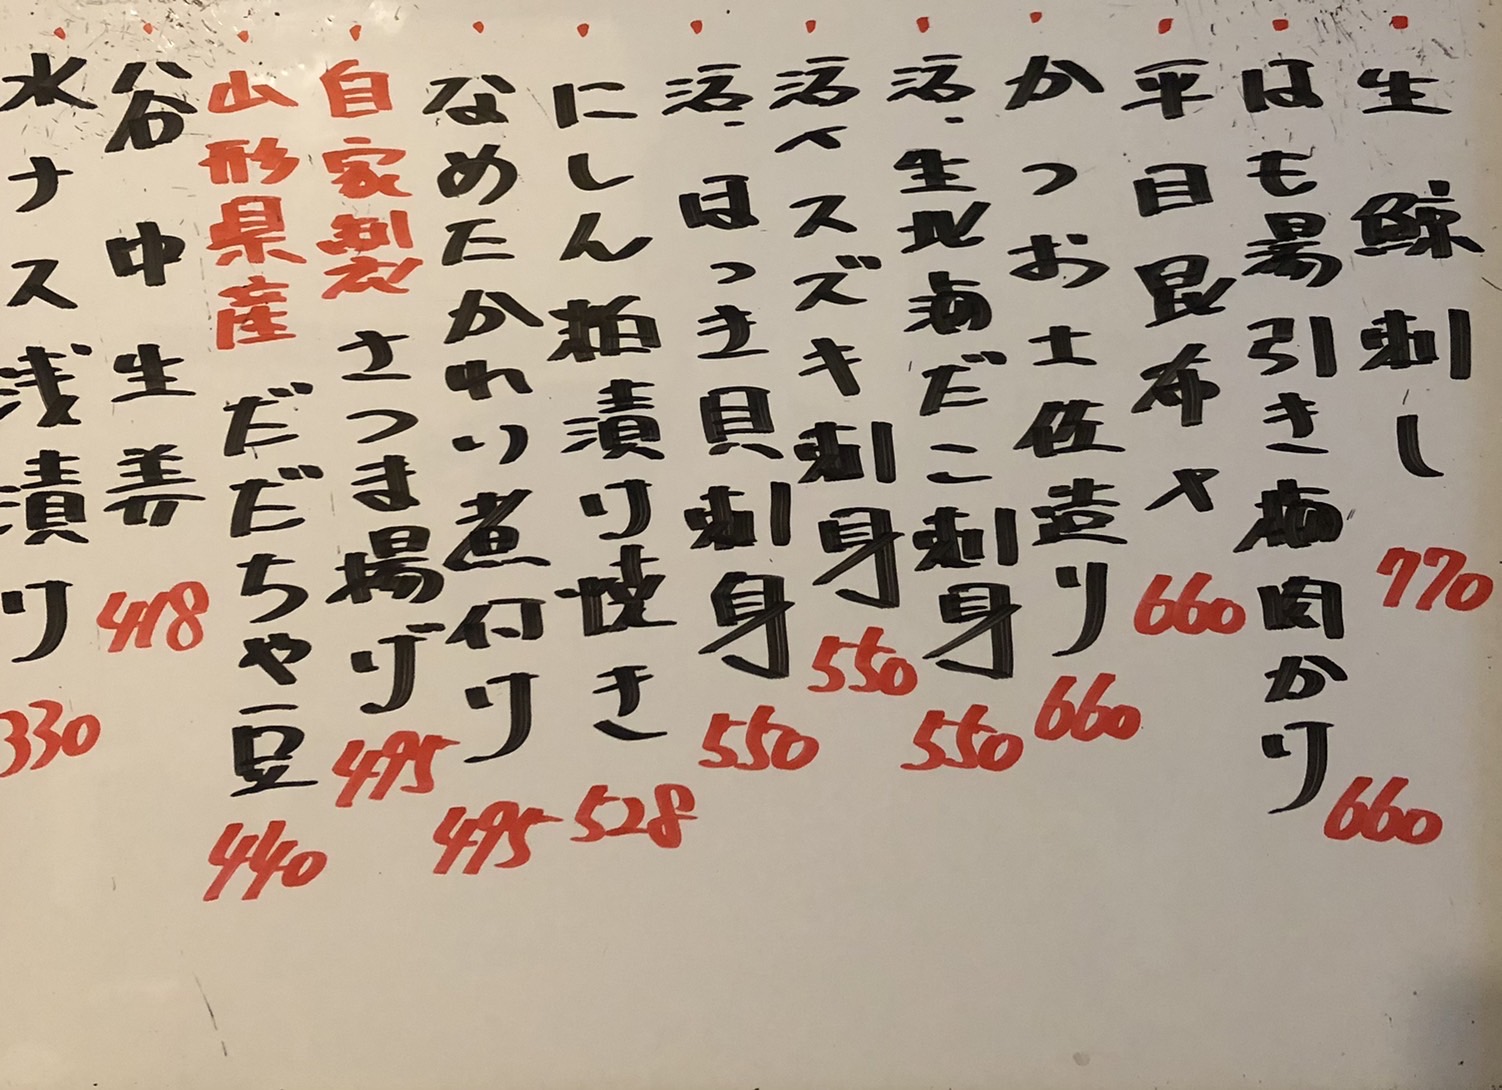 生鯨刺し 770
はも湯引き梅肉かり 660
平目昆布〆 660
かつお土佐造り 660
活、生北海だこ刺身 550
活〆スズキ刺身 550
活、ほっき貝刺身 550
にしん粕漬り焼き 528
なめたかれい煮付り 495
自家製さつま揚げ 495
山形県産だだちゃ豆 440
谷中生姜 418
水ナス浅漬り 330